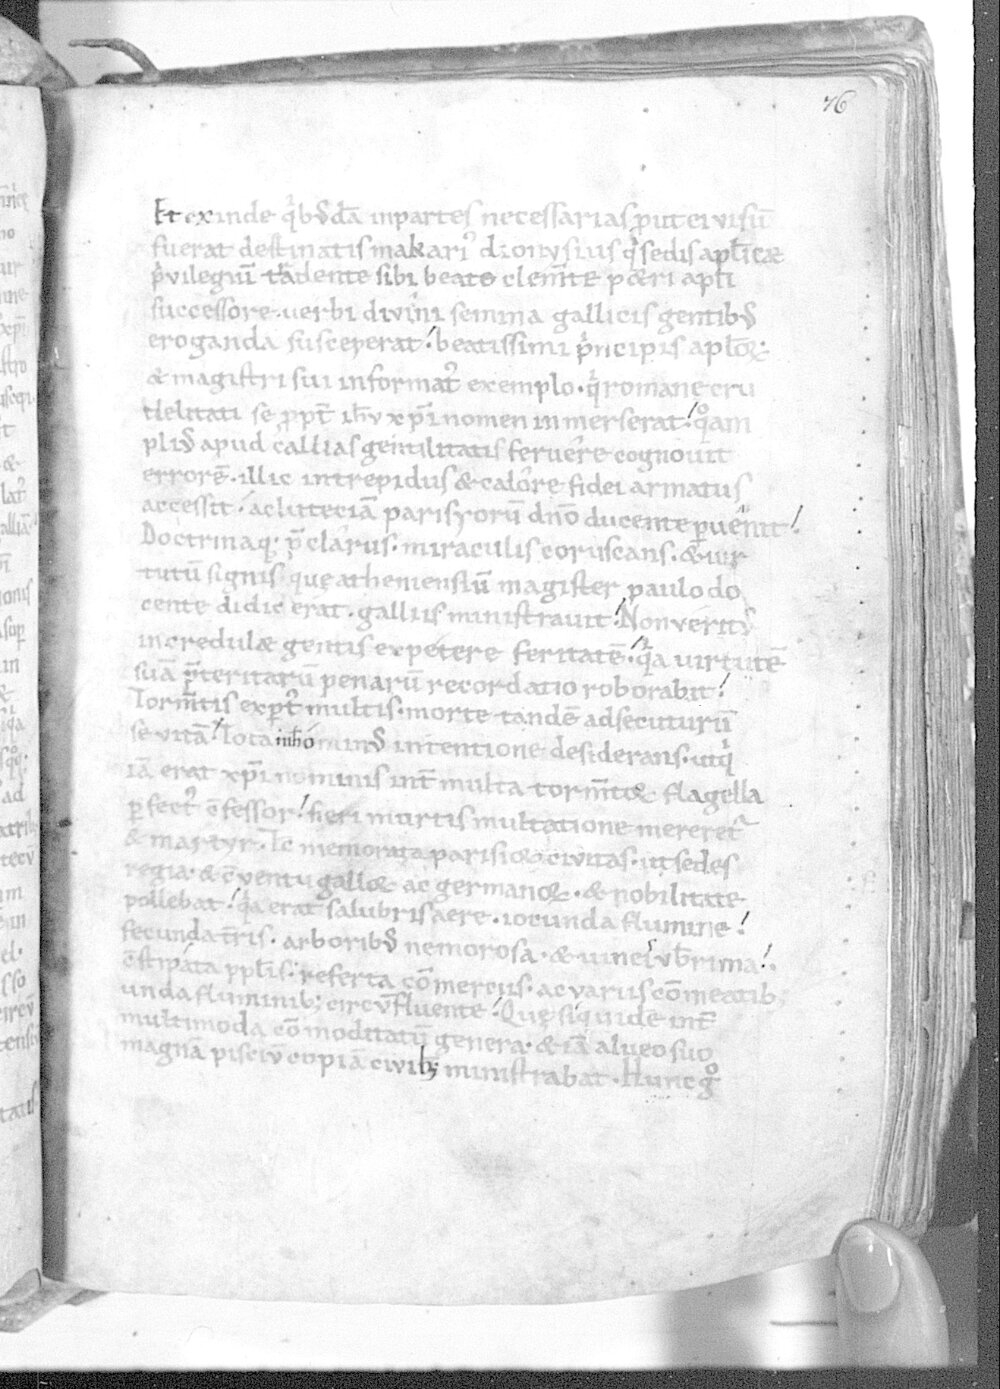 76
Et exinde q̇bꝰdā in partes necessarias ꝓut ei visū
fuerat destinatis makariꝰ dionysius q̇ sedis apl̄icæ
p̓vilegiū tͣdente sibi beato clem̄te pæri apl̄i
successore. uerbi divini semina gallicis gentibꝰ
eroganda susceperat! beatissimi p̓ncipis apl̄oꝝ
& magistri sui informatꝰ exemplo. q̇ romane cru
delitati se ꝓpt̄ ih̄v xp̄i nomen inmerserat! qͦam
pliꝰ apud Gallias gentilitatis feruere cognouit
errorē. illic intrepidus & calore fidei armatus
accessit. ac luteciā parisyorū dn̄o ducente ꝑuenit!
Doctrinaq; p̄clarus. miraculis coruscans. & uir
tutū signis. que athemensiū magister paulo do
cente didicerat. galliis ministrauit! Non veritꝰ
incredulæ gentis expetere feritatē. qͥa virtutē
suā p̄teritarū penarū recordatio roborabit!
Torm̄tis expt̄ multis. morte tandē adsecuturū
se vitā! Tota m̄ho mindꝰ intentione desiderans. utq̇
iā erat xp̄i nominis int̄ multa torm̄ta & flagella
ꝑfectꝰ c̄fessor! fieri mortis multatione mereret᷑
& martyr. Tc̄ memorata parisioꝝ civitas. ut sedes
regia. & c̄ventu galloꝝ ac germanoꝝ. & nobilitate
pollebat! qͥa erat salubris aere. iocunda flumine!
fecunda t̄ris. arboribꝰ nemorosa. & uineis vb̄rima!
c̄stipata ppl̄is. referta cōmerciis. ac variis cōmeatib;
unda fluminib; circv̄fluente! Que siquidē int̄
multimoda cōmoditatū genera. & iā alueo suo
magnā pisciv̄ copiā civib; ministrabat. Hunc gͦ